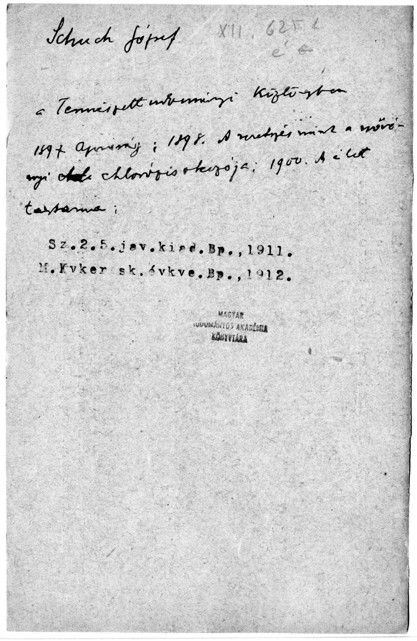 Schuch József XII. 625
a Természettudományi Közlönyben
1897 ; 1898. A mint a növé-
nyi chlorózis okozója. 1900. A élet
tartama ;
Sz.2.5.jav.kiad.Bp.,1911.
M.Kvker sk.évkve.Bp.,1912.
MAGYAR
TUDOMÁNYOS AKADÉMIA
KÖNYVTÁRA